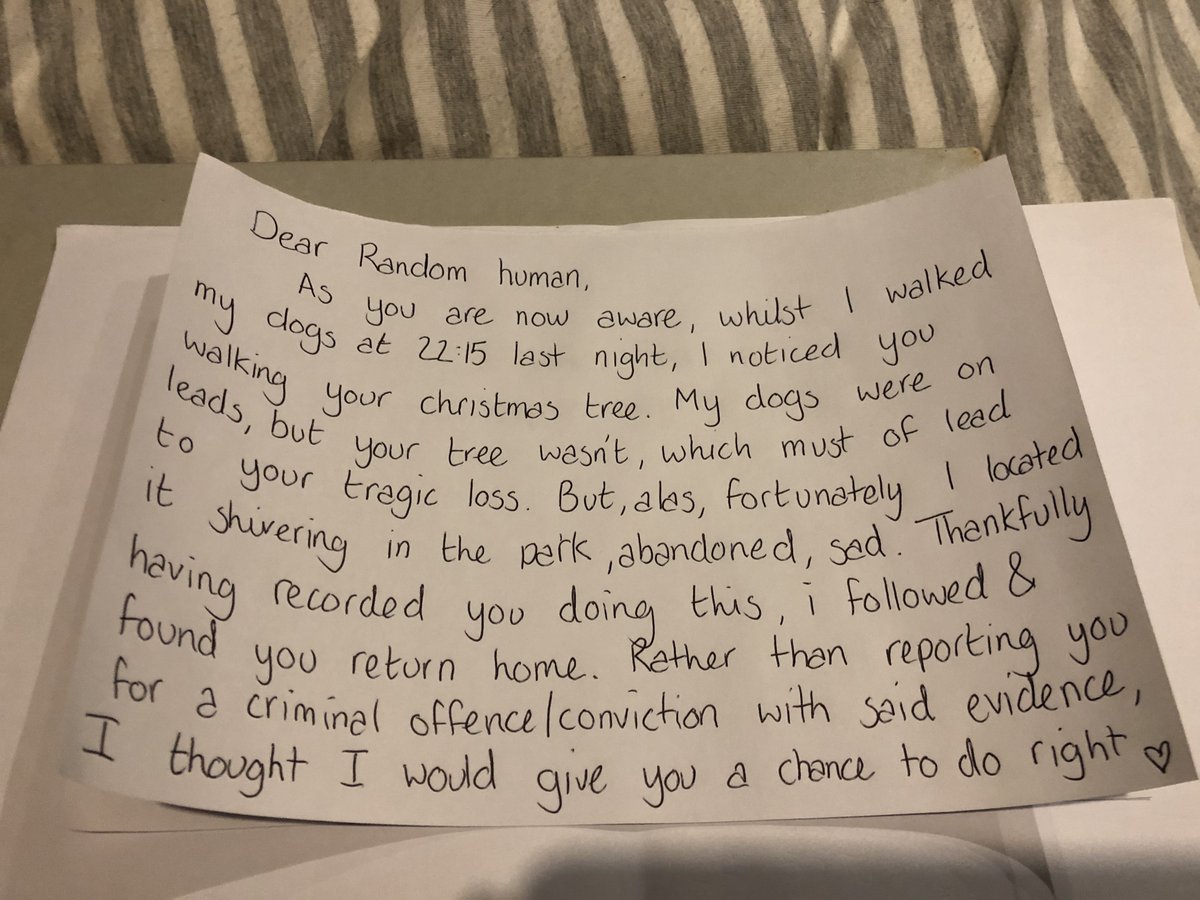 Dear Random human,
As you are now aware, whilst I walked
my dogs at 22:15 last night, I noticed you
walking your christmas tree. My dogs were on
leads, but your tree wasn't, which must of lead
to your tragic loss. But, alas, fortunately I located
it shivering in the park, abandoned, sad. Thankfully
having recorded you doing this, i followed &
found you return home. Rather than reporting you
for a criminal offence/conviction with said evidence,
I thought I would give you a chance to do right ♡